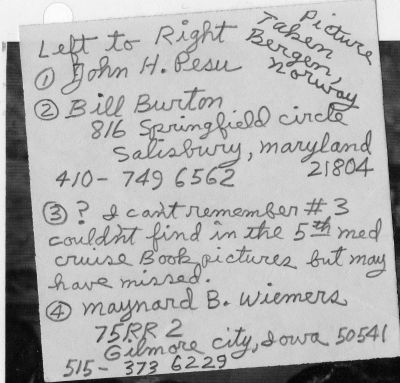 Left to Right
Picture
Taken
Bergen,
Norway
① John H. Pesu
② Bill Burton
816 Springfield circle
Salisbury, maryland
21804
410- 749 6562
③ ? I can't remember # 3
couldn't find in the 5th med
cruise Book pictures but may
have missed.
④ maynard B. Wiemers
75RR 2
Gilmore city, Iowa 50541
515- 373 6229